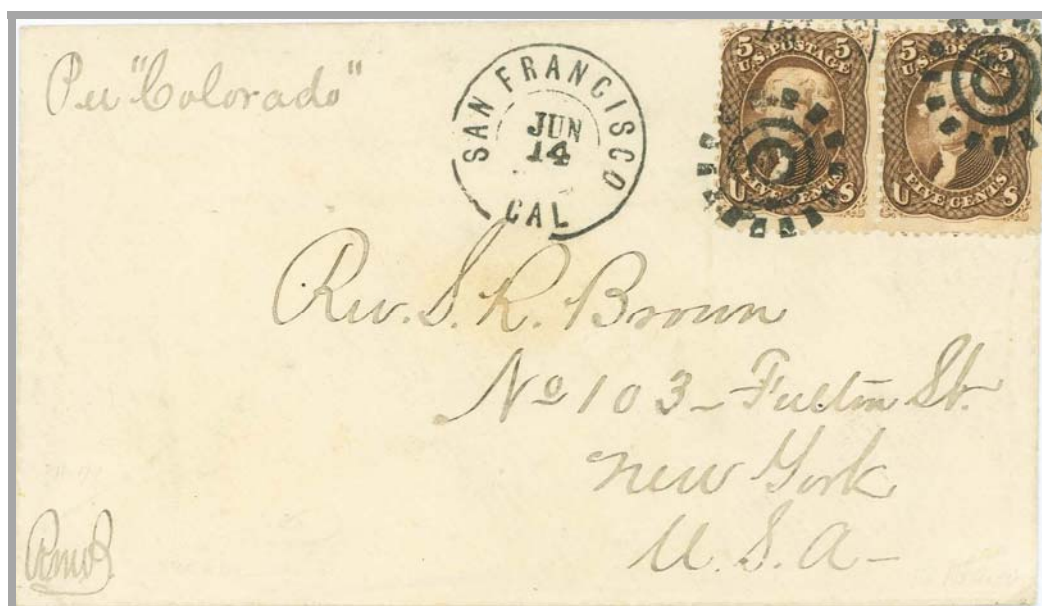 Per "Colorado"
SAN FRANCISCO
JUN
14
CAL
5 U.S. POSTAGE 5
U FIVE CENTS S
5 U.S. POSTAGE 5
U FIVE CENTS S
Rev. S. R. Brown
No 103 - Fulton St.
New York
U. S. A -